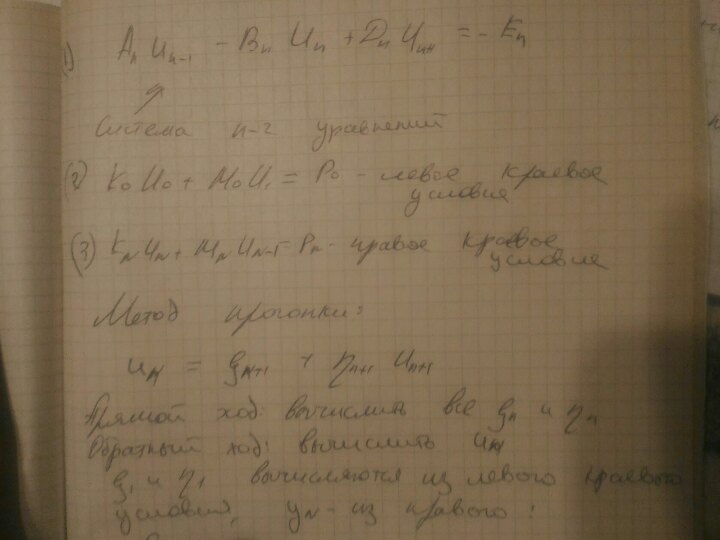 1) AₙUₙ₋₁ - BₙUₙ + DₙUₙ₊₁ = - Eₙ
Система n-2 уравнений
(2) K₀U₀ + M₀U₁ = P₀ - левое краевое
условие
(3) KₙUₙ + MₙUₙ₋₁ = Pₙ - правое краевое
условие
Метод прогонки:
uₙ = ξₙ₊₁ + ηₙ₊₁ uₙ₊₁
Прямой ход: вычислить все ξₙ и ηₙ
Обратный ход: вычислить uₙ
ξ₁ и η₁ вычисляются из левого краевого
условия, yₙ - из правого!